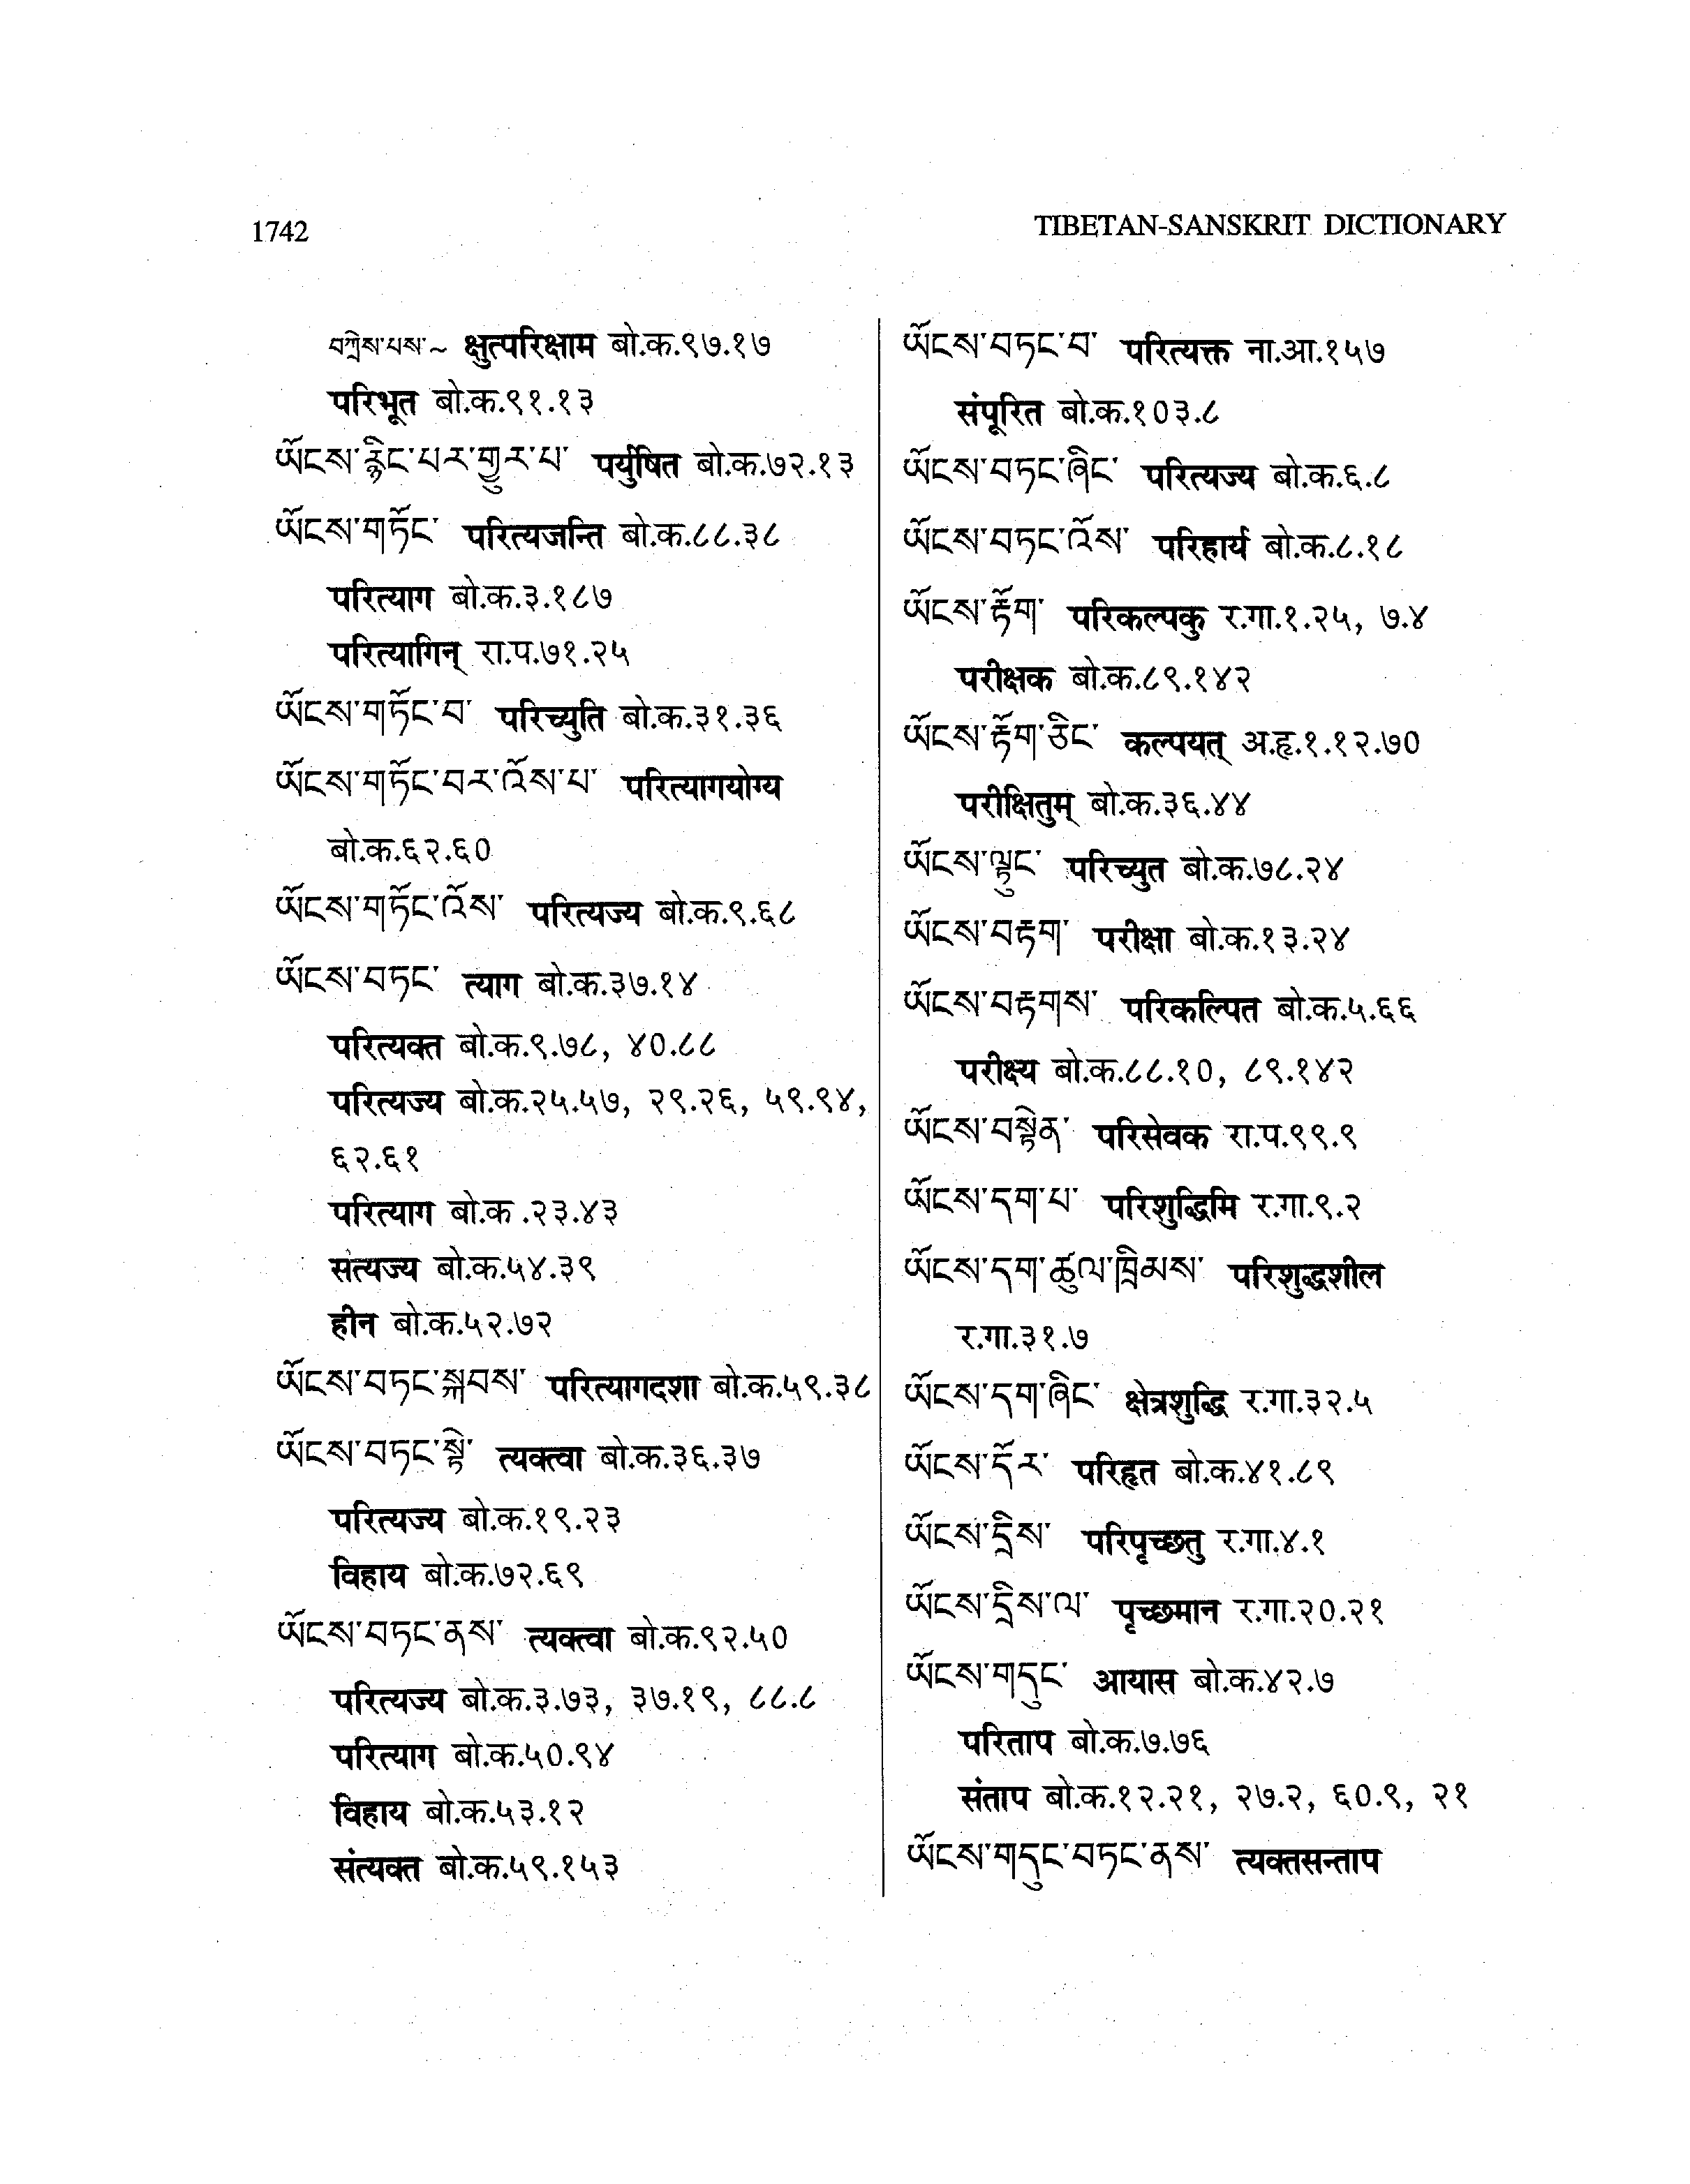 1742
TIBETAN-SANSKRIT DICTIONARY
བཀྲེས་པས་~ क्षुत्परिक्षाम बो.क.९७.१७
परिभूत बो.क.९१.१३
ཡོངས་རྙིང་པར་གྱུར་པ་ पर्युषित बो.क.७२.१३
ཡོངས་གཏོང་ परित्यजन्ति बो.क.८८.३८
परित्याग बो.क.३.१८७
परित्यागिन् रा.प.७१.२५
ཡོངས་གཏོང་བ་ परिच्युति बो.क.३१.३६
ཡོངས་གཏོང་བར་འོས་པ་ परित्यागयोग्य
बो.क.६२.६०
ཡོངས་གཏོང་འོས་ परित्यज्य बो.क.९.६८
ཡོངས་བཏང་ त्याग बो.क.३७.१४
परित्यक्त बो.क.९.७८, ४०.८८
परित्यज्य बो.क.२५.५७, २९.२६, ५९.९४,
६२.६१
परित्याग बो.क .२३.४३
संत्यज्य बो.क.५४.३९
हीन बो.क.५२.७२
ཡོངས་བཏང་སྐབས་ परित्यागदशा बो.क.५९.३८
ཡོངས་བཏང་སྟེ་ त्यक्त्वा बो.क.३६.३७
परित्यज्य बो.क.१९.२३
विहाय बो.क.७२.६९
ཡོངས་བཏང་ནས་ त्यक्त्वा बो.क.९२.५०
परित्यज्य बो.क.३.७३, ३७.१९, ८८.८
परित्याग बो.क.५०.९४
विहाय बो.क.५३.१२
संत्यक्त बो.क.५९.१५३
ཡོངས་བཏང་བ་ परित्यक्त ना.आ.१५७
संपूरित बो.क.१०३.८
ཡོངས་བཏང་ཞིང་ परित्यज्य बो.क.६.८
ཡོངས་བཏང་འོས་ परिहार्य बो.क.८.१८
ཡོངས་རྟོག་ परिकल्पकु र.गा.१.२५, ७.४
परीक्षक बो.क.८९.१४२
ཡོངས་རྟོག་ཅིང་ कल्पयत् अ.हृ.१.१२.७०
परीक्षितुम् बो.क.३६.४४
ཡོངས་ལྟུང་ परिच्युत बो.क.७८.२४
ཡོངས་བརྟག་ परीक्षा बो.क.१३.२४
ཡོངས་བརྟགས་ परिकल्पित बो.क.५.६६
परीक्ष्य बो.क.८८.१०, ८९.१४२
ཡོངས་བསྟེན་ परिसेवक रा.प.९९.९
ཡོངས་དག་པ་ परिशुद्धिमि र.गा.९.२
ཡོངས་དག་ཚུལ་ཁྲིམས་ परिशुद्धशील
र.गा.३१.७
ཡོངས་དག་ཞིང་ क्षेत्रशुद्धि र.गा.३२.५
ཡོངས་དོར་ परिहृत बो.क.४१.८९
ཡོངས་དྲིས་ परिपृच्छतु र.गा.४.१
ཡོངས་དྲིས་ལ་ पृच्छमान र.गा.२०.२१
ཡོངས་གདུང་ आयास बो.क.४२.७
परिताप बो.क.७.७६
संताप बो.क.१२.२१, २७.२, ६०.९, २१
ཡོངས་གདུང་བཏང་ནས་ त्यक्तसन्ताप